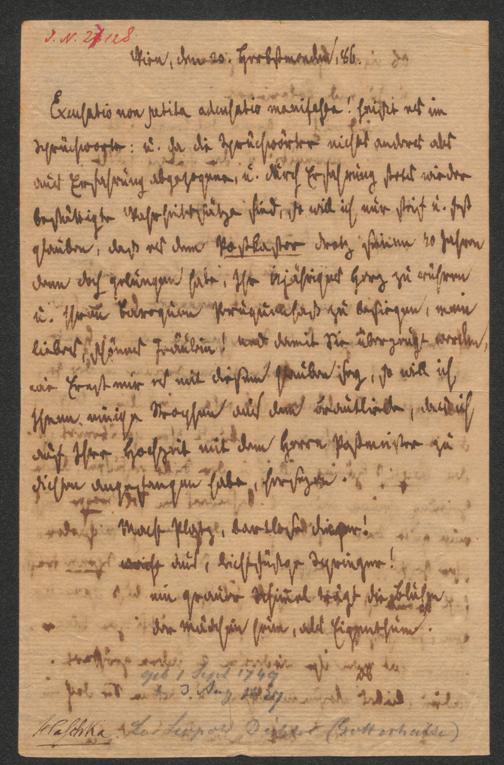 I. N. 27128
Wien, den 20. Herbstmonden, 86.
Excusatio non petita accusatio manifesta! heißt es im
Sprüchworte: u. da die Sprüchwörter nichts anderes als
aus Erfahrung abgezogene, u. durch Erfahrung stets wieder
bestättigte Wahrheitssätze sind, so will ich nur steif u. fest
glauben, daß es dem Postkastor trotz seinen 70 Jahren
denn doch gelungen habe, Ihr 61jähriges Herz zu rühren
u. Ihren Excuse zu besiegen, mein
liebes, schönes Fräulein! und damit Sie überzeugt werden,
wie Ernst mir es mit diesem Glauben sey, so will ich
Ihnen einige Strophen aus dem Brautliede, das ich
auf Ihre Hochzeit mit dem Herrn Postmeister zu
dichten angefangen habe, hersetzen.
Macht Platz, bartlose Dinger!
weicht aus, leichtfüßige Springer!
ein grauer Schimel trägt die Blühe
der Mädchen heim, als Eigenthum.
geb 1 Sept 1749
3. Aug 1827
Haschka Lor Leopold Dichter (Gotterhalte)